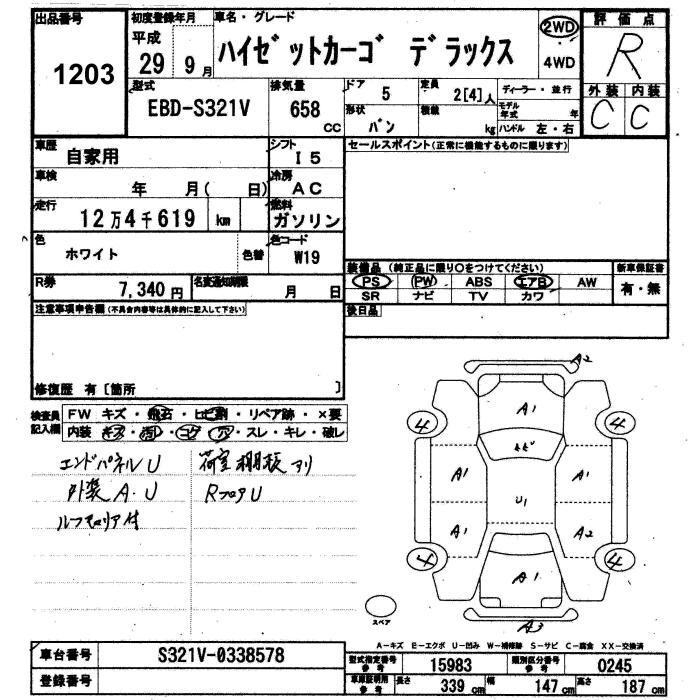 出品番号
1203
初度登録年月
平成
29 9月
車名・グレード
ハイゼットカーゴ デラックス
2WD
4WD
評価点
R
外装 内装
C C
型式
EBD-S321V
排気量
658 CC
ドア
5
定員
2[4]人
ディーラー・並行
形状
バン
積載
kg
モデル年式 年
ハンドル 左・右
車歴
自家用
シフト
I5
セールスポイント(正常に機能するものに限ります)
車検
年 月( 日)
冷房
AC
走行
12万4千619 km
燃料
ガソリン
色
ホワイト
色替
色コード
W19
装備品 (純正品に限り○をつけてください)
新車保証書
PS PW ABS エアB AW
有・無
SR ナビ TV カワ
R券
7,340円
名変通知期限
月 日
後日品
注意事項申告欄(不具合内容等は具体的に記入して下さい)
修復歴 有〔箇所 〕
検査員記入欄
FW キズ・飛石・ヒビ割・リペア跡・×要
内装 キズ・汚レ・コゲ・穴・スレ・キレ・破レ
エンドパネルU
荷室棚板アリ
外装A.U
RフロアU
ルーフキャリア付
A2
4 4
A1
A1 A1
U1
A1 A2
4 4
A1
スペア
A3
A-キズ E-エクボ U-凹み W-補修跡 S-サビ C-腐食 XX-交換済
車台番号
S321V-0338578
型式指定番号 参考
15983
類別区分番号 参考
0245
登録番号
車庫証明用 参考
長さ 339cm
幅 147cm
高さ 187cm